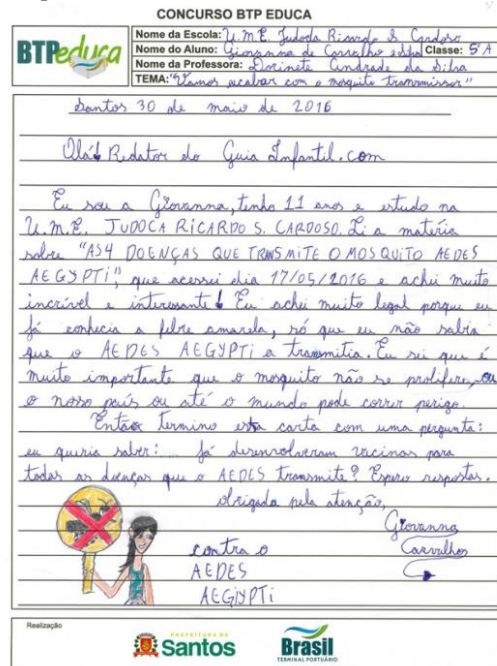 CONCURSO BTP EDUCA
BTPeduca
Nome da Escola: U.M.E. Judoca Ricardo S. Cardoso
Nome do Aluno: Giovanna de Carvalho Classe: 5ºA
Nome da Professora: Dorinete Andrade da Silva
TEMA: "Vamos acabar com o mosquito transmissor"
Santos 30 de maio de 2016
Olá Redator do Guia Infantil.com
Eu sou a Giovanna, tenho 11 anos e estudo na
U.M.E. JUDOCA RICARDO S. CARDOSO. Li a matéria
sobre "AS 4 DOENÇAS QUE TRANSMITE O MOSQUITO AEDES
AEGYPTI", que acessei dia 17/05/2016 e achei muito
incrível e interessante! Eu achei muito legal porque eu
já conhecia a febre amarela, só que eu não sabia
que o AEDES AEGYPTI a transmitia. Eu sei que é
muito importante que o mosquito não se prolifere, ou
o nosso país ou até o mundo pode correr perigo.
Então termino esta carta com uma pergunta:
eu queria saber: já desenvolveram vacinas para
todas as doenças que o AEDES transmite? Espero respostas.
obrigada pela atenção,
Giovanna
Carvalho
contra o
AEDES
AEGIYPTi
Realização
PREFEITURA DE
Santos
Brasil
TERMINAL PORTUÁRIO